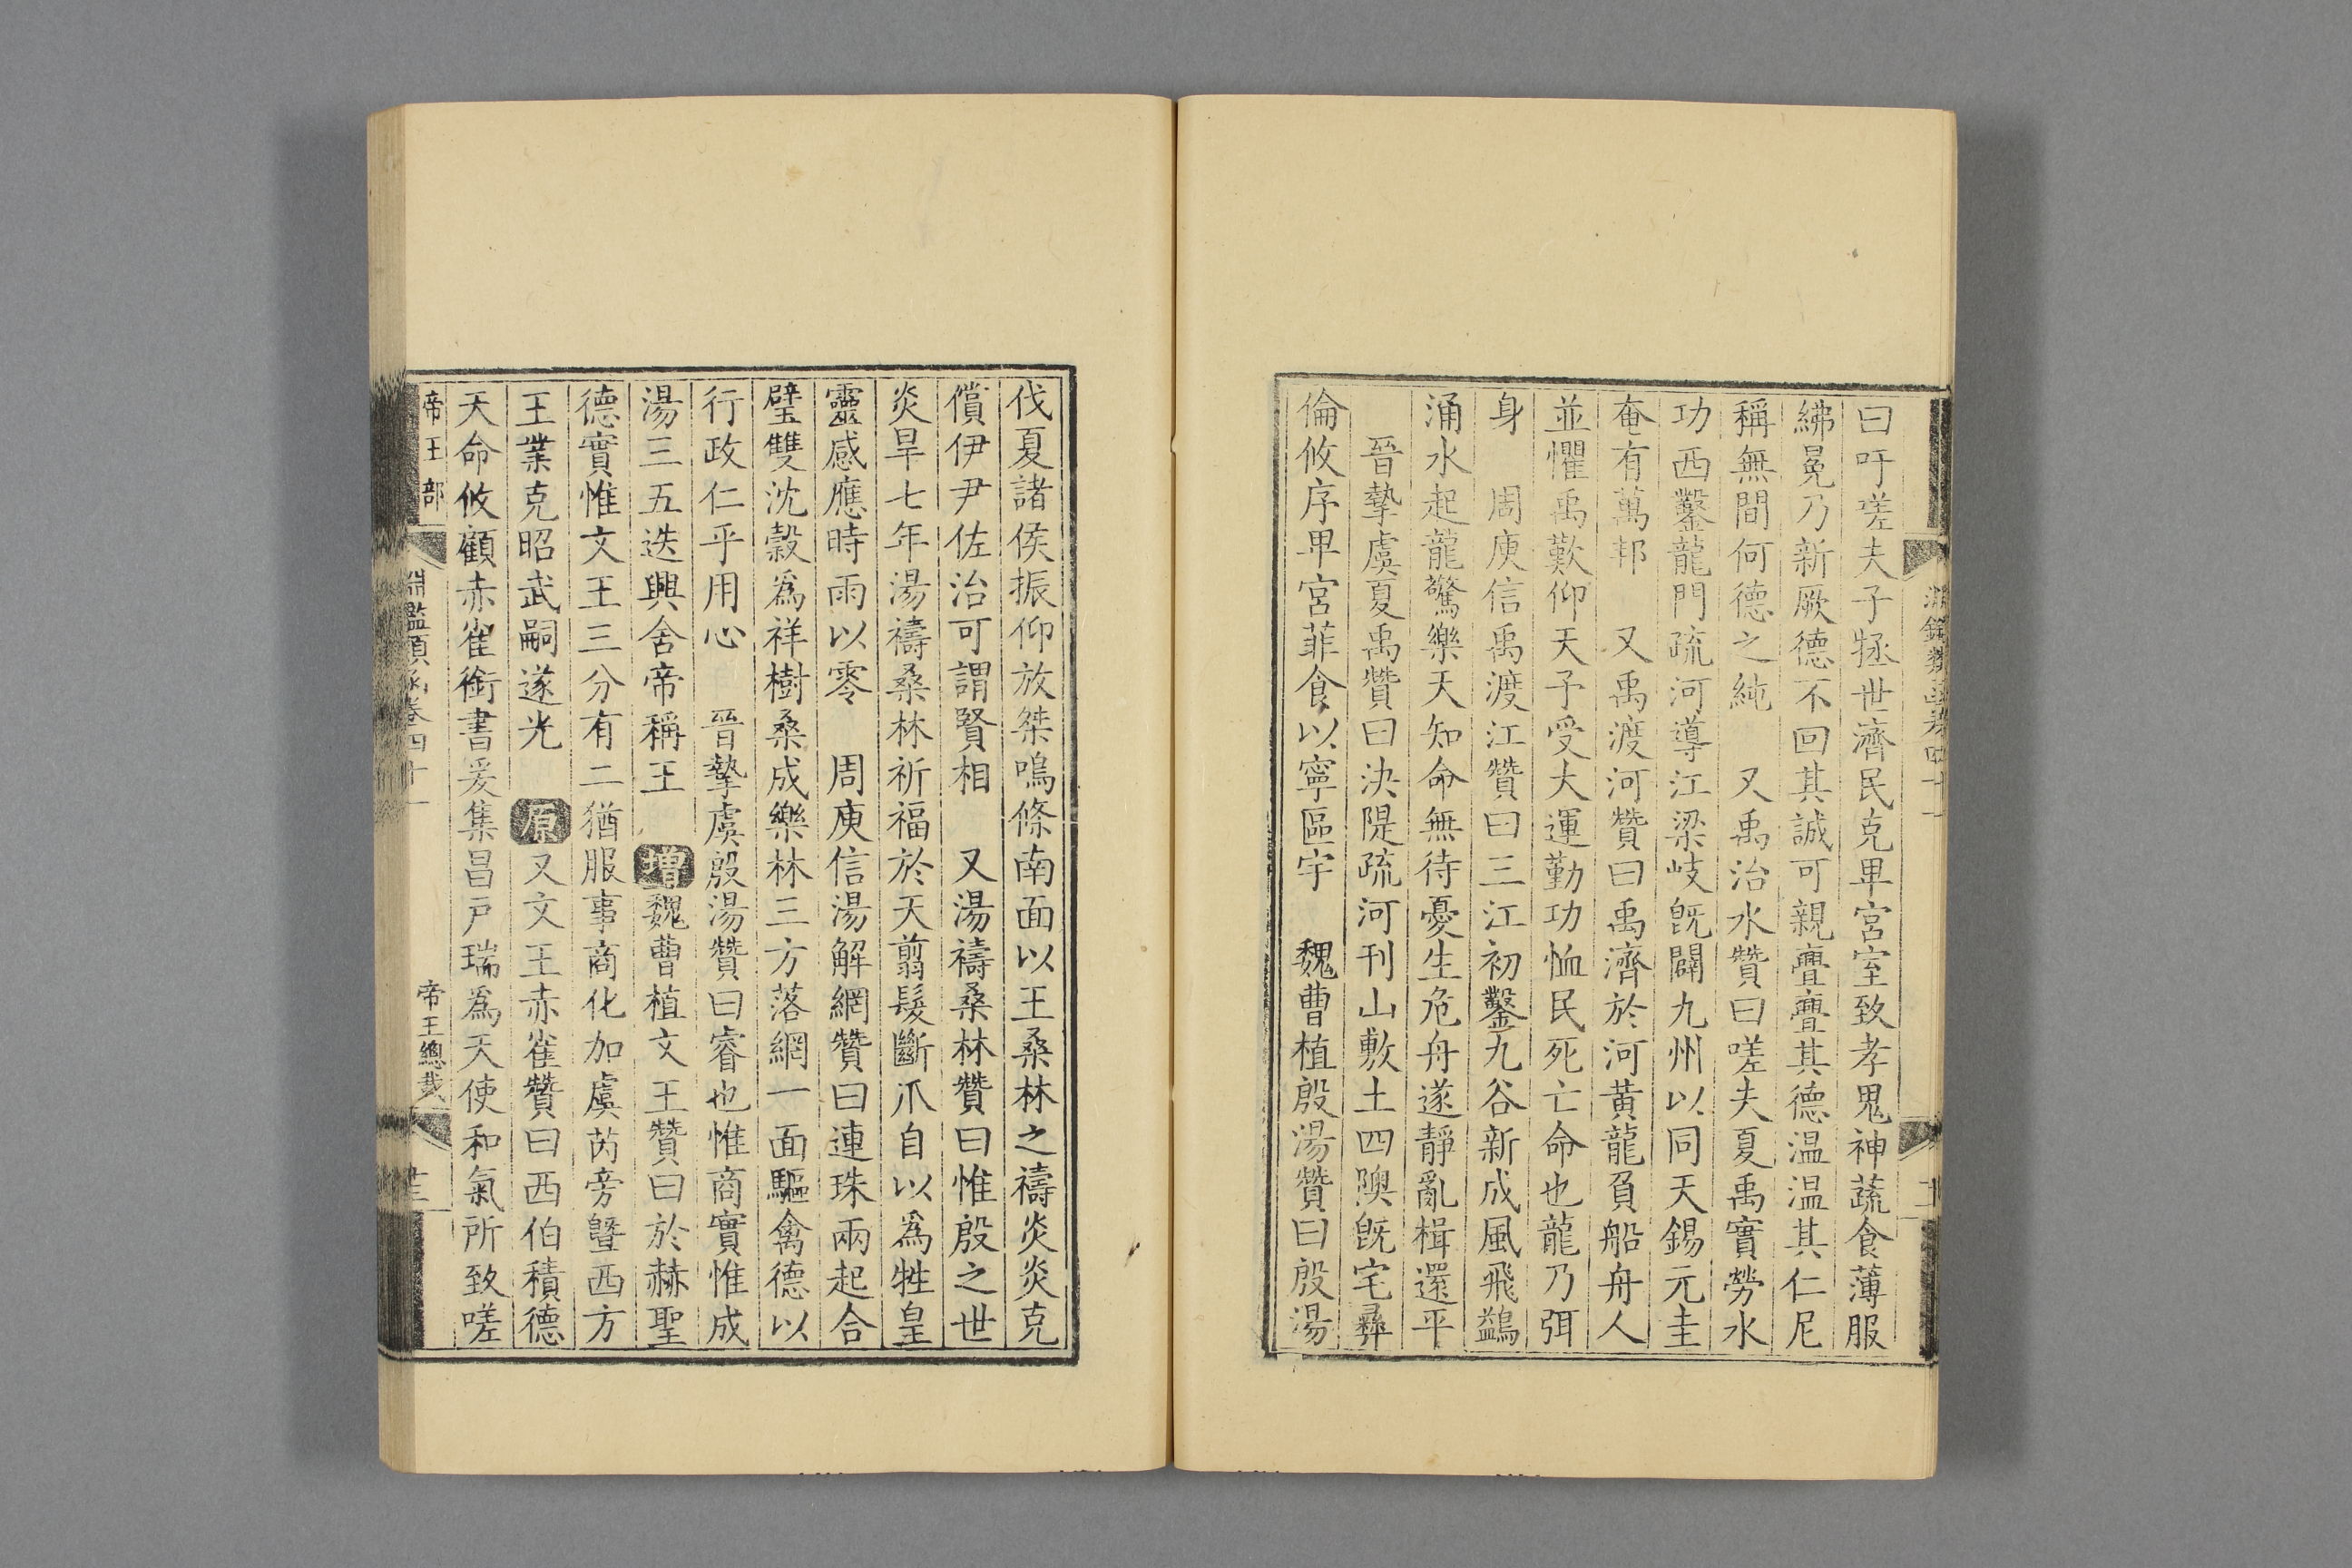 曰吁嗟夫子拯世濟民克卑宮室致孝鬼神蔬食薄服
紼冕乃新厥德不回其誠可親亹亹其德温温其仁尼
稱無間何德之純　又禹治水贊曰嗟夫夏禹實勞水
功西鑿龍門疏河導江梁岐旣闢九州以同天錫元圭
奄有萬邦　又禹渡河贊曰禹濟於河黃龍負船舟人
並懼禹歎仰天子受大運勤功恤民死亡命也龍乃弭
身　周庾信禹渡江贊曰三江初鑿九谷新成風飛鷁
涌水起龍驚樂天知命無待憂生危舟遂靜亂楫還平
晉摯虞夏禹贊曰決隄疏河刊山敷土四隩旣宅彞
倫攸序卑宮菲食以寧區宇　魏曹植殷湯贊曰殷湯
伐夏諸侯振仰放桀鳴條南面以王桑林之禱炎炎克
償伊尹佐治可謂賢相　又湯禱桑林贊曰惟殷之世
炎旱七年湯禱桑林祈福於天翦髮斷爪自以爲牲皇
靈感應時雨以零　周庾信湯解網贊曰連珠兩起合
璧雙沈穀爲祥樹桑成樂林三方落網一面驅禽德以
行政仁乎用心　晉摯虞殷湯贊曰睿也惟商實惟成
湯三五迭興舍帝稱王　增魏曹植文王贊曰於赫聖
德實惟文王三分有二猶服事商化加虞芮旁曁西方
王業克昭武嗣遂光　原又文王赤雀贊曰西伯積德
天命攸顧赤雀銜書爰集昌戸瑞爲天使和氣所致嗟
帝王部　淵鑑類函卷四十一　帝王總載